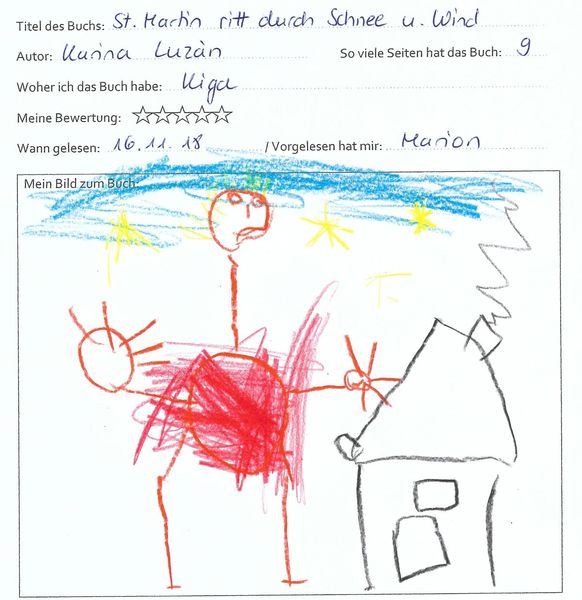 Titel des Buchs: St. Martin ritt durch Schnee u. Wind
Autor: Karina Luzàn So viele Seiten hat das Buch: 9
Woher ich das Buch habe: Kiga
Meine Bewertung:
Wann gelesen: 16.11.18 / Vorgelesen hat mir: Marion
Mein Bild zum Buch: